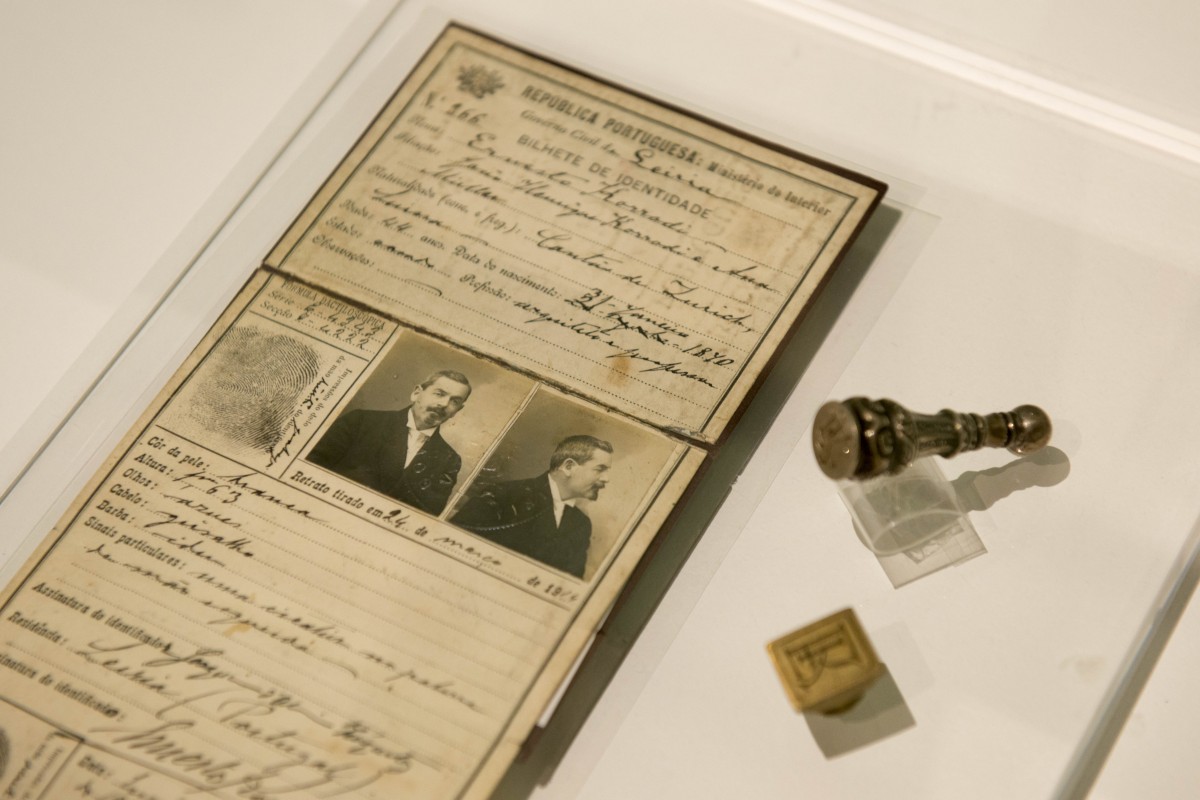 REPÚBLICA PORTUGUESA: Ministério do Interior
Governo Civil de Leiria
N.º 266 BILHETE DE IDENTIDADE
Nome: Ernesto Korrodi
Filiação: João Henrique Korrodi e Ana
Müller
Naturalidade (conc. e freg.): Cantão de Zurich,
Suissa
Idade: 44 anos. Data do nascimento: 31 Janeiro 1870
Estado: casado Profissão: arquitecto professor
Observações:
FORMULA DACTILOSCÓPICA
Série
Secção
Impressões do
da mão
Retrato tirado em 24 de março de 191
Côr da pele: branca
Altura: 1.63
Olhos: azues
Cabelo: grisalho
Barba: idem
Sinais particulares: uma cicatriz na palma
da mão esquerda
Assinatura do identificador
Residência: Leiria (Portugal)
Assinatura do identificado:
Data: